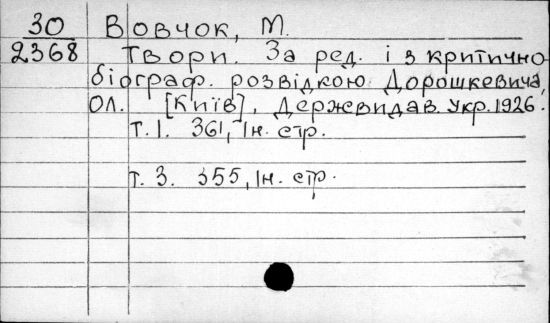 30 Вовчок, М.
2368 Твори. За ред. і з критично
біограф. розвідкою Дорошкевича,
Ол. [Київ], Держвидав. Укр. 1926.
т. 1. 361, 1н. стр.
т. 3. 355, 1н. стр.